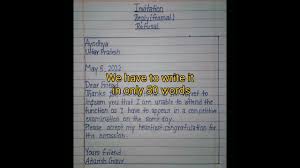 Invitation
Reply (Formal)
Refusal
Ayodhya
Uttar Pradesh
May 8, 2022
We have to write it
in only 50 words
Dear Friend
Thanks for
inform you that I am unable to attend the
function as I have to appear in a competitive
examination on the same day.
Please accept my heartiest congratulation for
the occassion.
Yours Friend